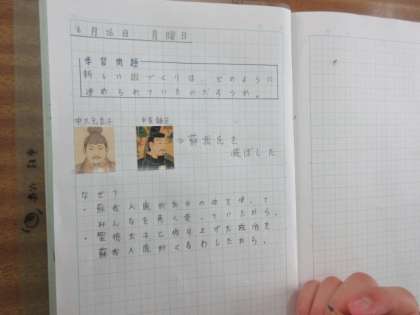 6月16日 月曜日
学習問題
新しい国づくりは、どのように
進められていったのだろうか。
中大兄皇子 中臣鎌足
⇒蘇我氏を
滅ぼした
なぜ?
・蘇我入鹿が
みんなを
・聖徳太子と作り上げた政治を
蘇我入鹿がくるわしたから。